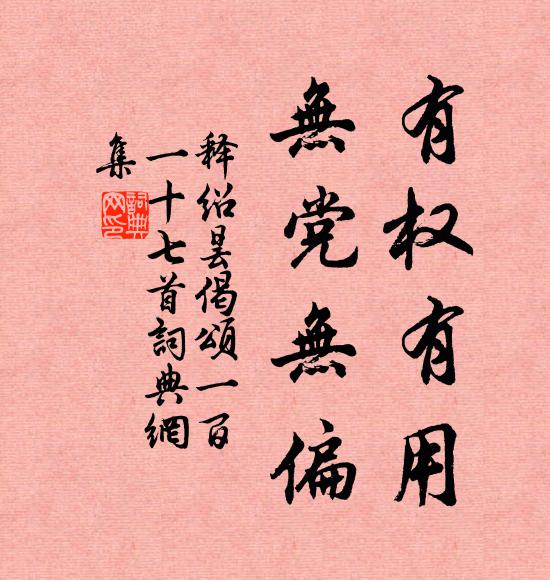 有权有用
無党無偏
释绍昙偈頌一百
一十七首詞典網
集
詞典網印